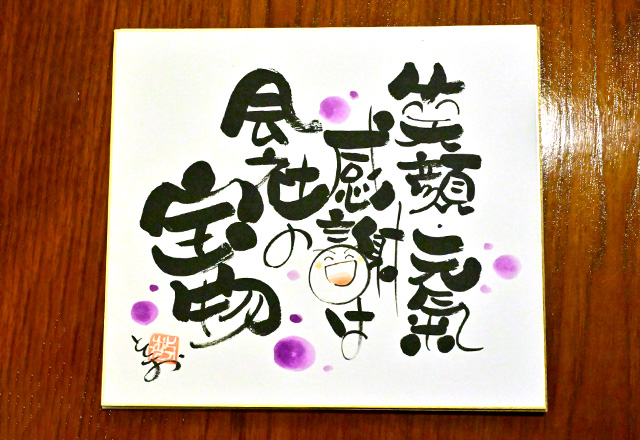 笑顔・元氣
感謝は
会社の
宝物